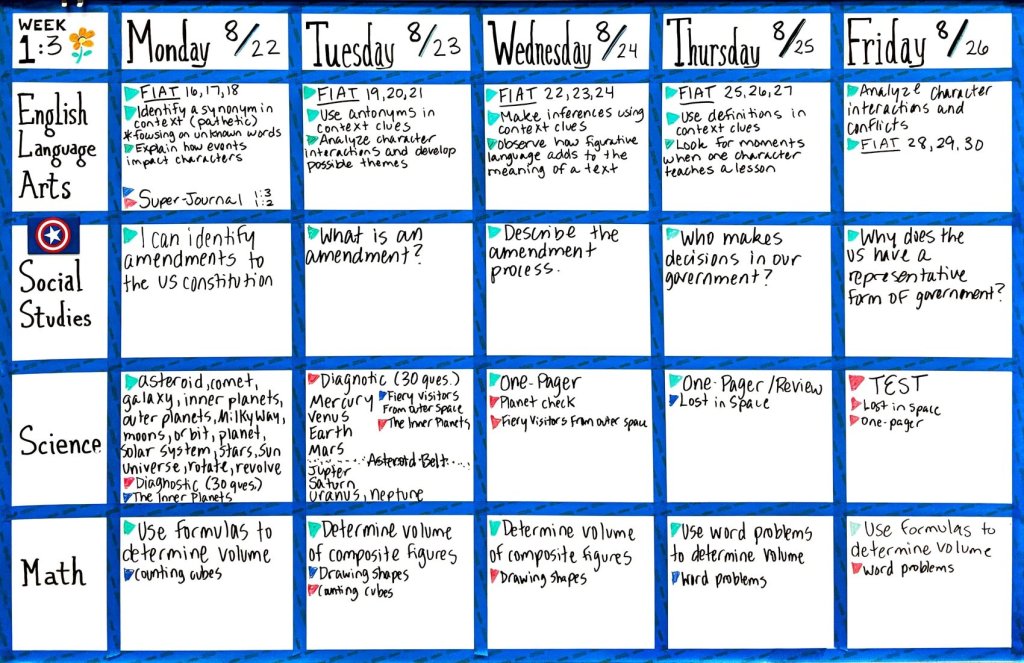 WEEK
1:3
Monday 8/22
Tuesday 8/23
Wednesday 8/24
Thursday 8/25
Friday 8/26
English
Language
Arts
FIAT 16,17,18
Identify a synonym in
context (pathetic)
*focusing on unknown words
Explain how events
impact characters
Super-Journal 1:3
1:2
FIAT 19,20,21
Use antonyms in
context clues
Analyze character
interactions and develop
possible themes
FIAT 22,23,24
Make inferences using
context clues
observe how figurative
language adds to the
meaning of a text
FIAT 25,26,27
Use definitions in
context clues
Look for moments
when one character
teaches a lesson
Analyze character
interactions and
conflicts
FIAT 28,29,30
Social
Studies
I can identify
amendments to
the US constitution
What is an
amendment?
Describe the
amendment
process.
Who makes
decisions in our
government?
Why does the
US have a
representative
form of government?
Science
asteroid, comet,
galaxy, inner planets,
outer planets, Milky Way,
moons, orbit, planet,
solar system, stars, sun
universe, rotate, revolve
Diagnostic (30 ques.)
The Inner Planets
Diagnotic (30 ques.)
Mercury
Fiery Visitors
From outer space
Venus
The Inner Planets
Earth
Mars
Asteroid Belt
Jupiter
Saturn
Uranus, neptune
One-Pager
Planet check
Fiery Visitors From outer space
One-Pager/Review
Lost in Space
TEST
Lost in space
One-pager
Math
Use formulas to
determine volume
Counting cubes
Determine volume
of composite figures
Drawing shapes
Counting cubes
Determine volume
of composite figures
Drawing shapes
Use word problems
to determine volume
Word problems
Use formulas to
determine volume
Word problems